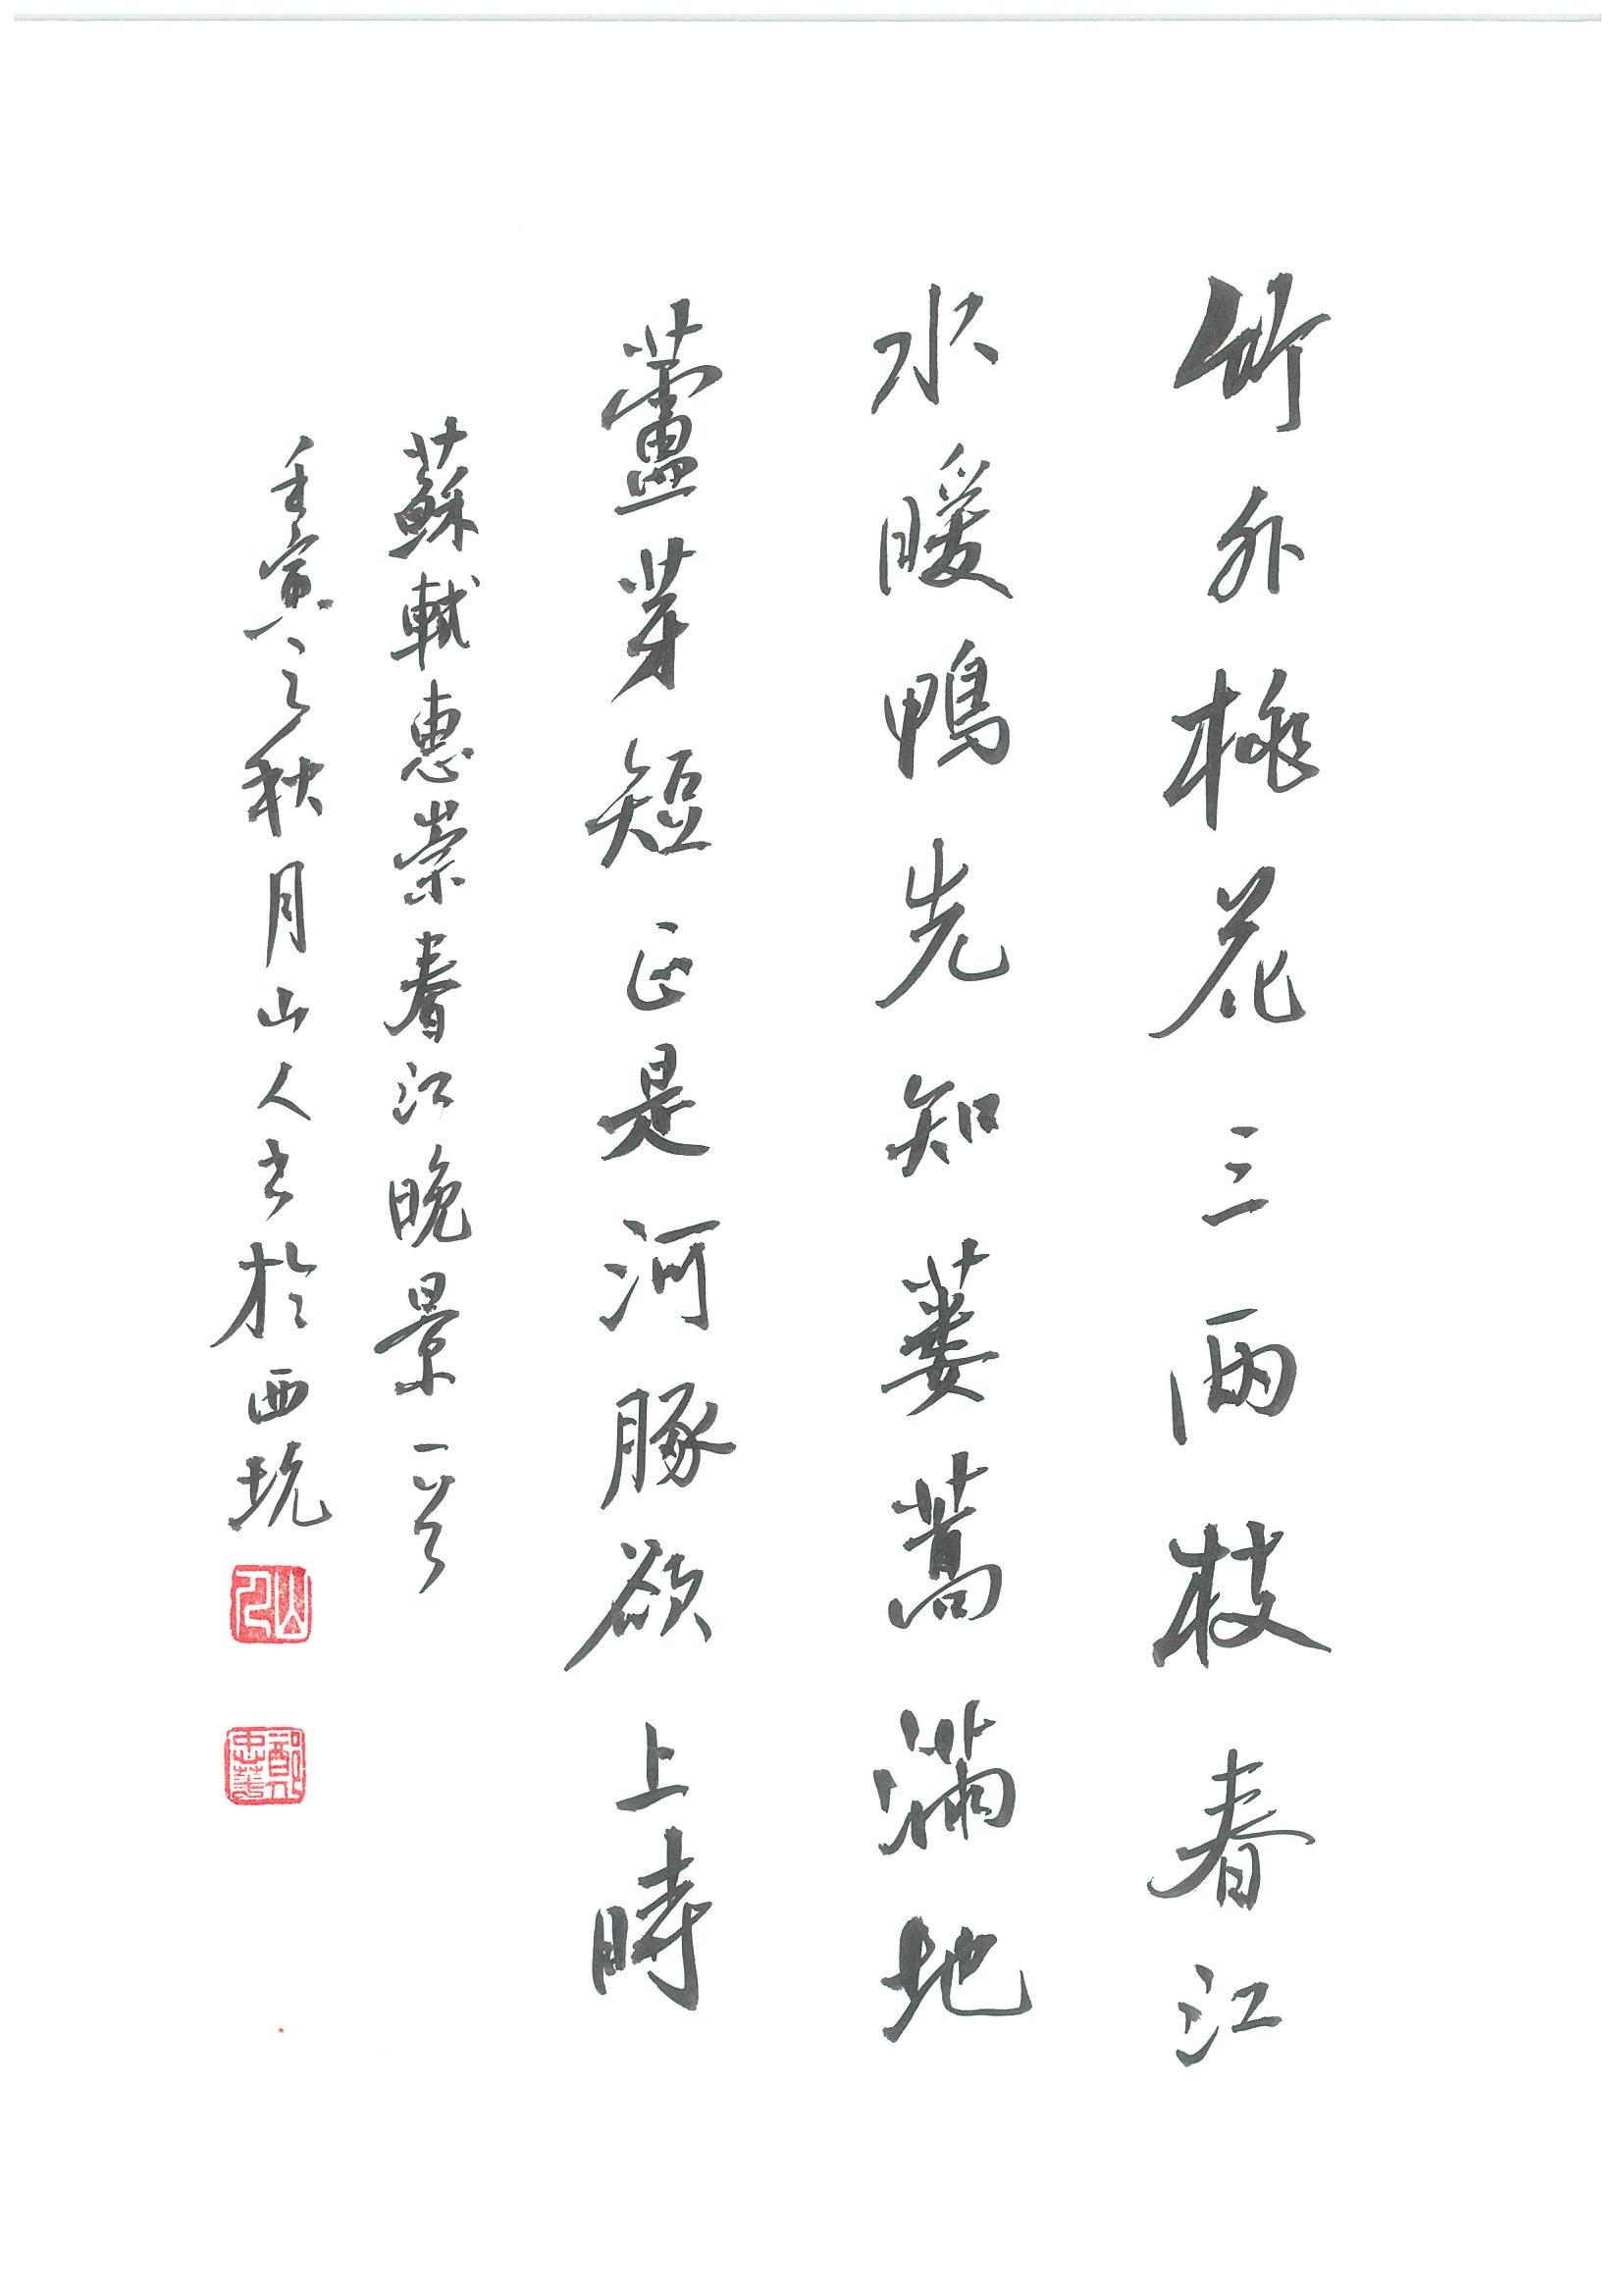 竹外桃花三兩枝春江
水暖鴨先知蔞蒿滿地
蘆芽短正是河豚欲上時
蘇軾惠崇春江晚景一首
壬寅之秋月山人書於西坑
山人
鄭忠華